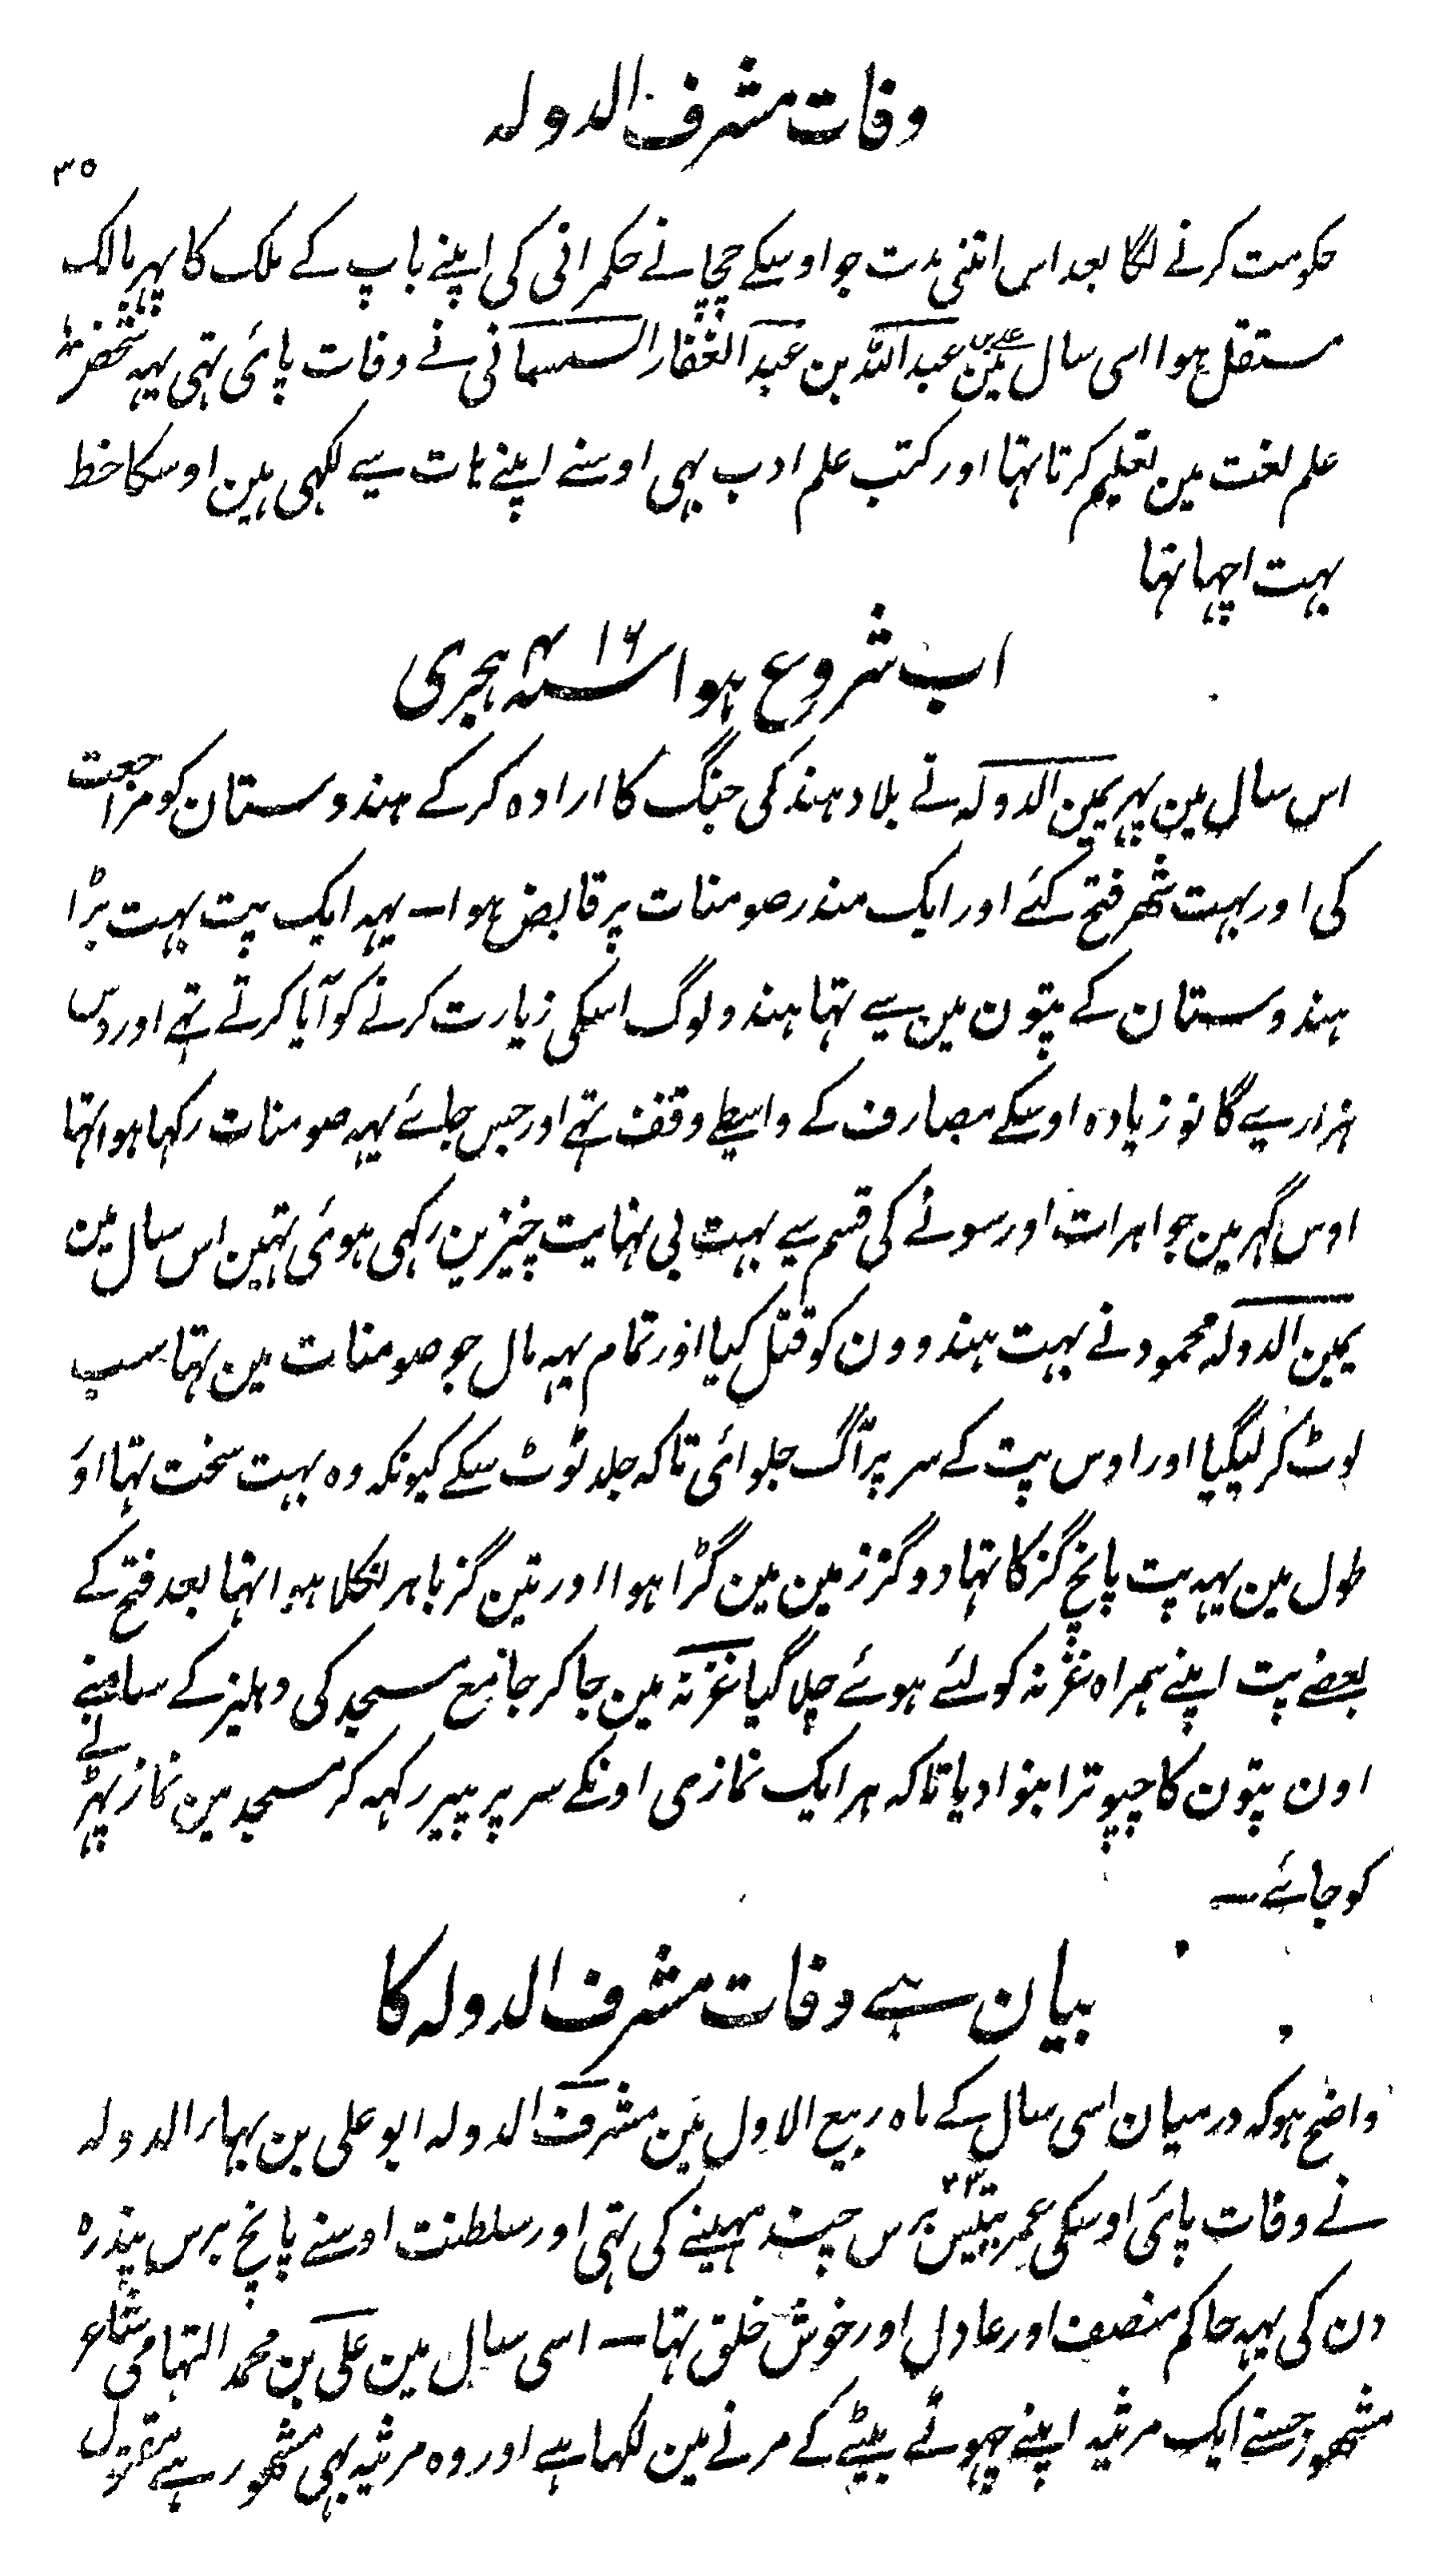 وفات مشرف الدولہ
۳۵
حکومت کرنے لگا بعد اس اتنی مدت جو اوسکے چچا نے حکمرانی کی اپنے باپ کے ملک کا پہر مالک
مستقل ہوا اسی سال مین عبد اللہ بن عبد الغفار السمسمانی نے وفات پائی تہی یہہ شخص
علم لغت مین تعلیم کرتا تہا اور کتب علم ادب بہی اوسنے اپنے ہات سے لکہی ہین اوسکا خط
بہت اچہا تہا
اب شروع ہوا سنہ ۴۱۶ ہجری
اس سال مین پہر یمین الدولہ نے بلاد ہند کی جنگ کا ارادہ کر کے ہندوستان کو مراجعت
کی اور بہت شہر فتح کئے اور ایک مندر صومنات پر قابض ہوا ـ یہہ ایک بت بہت بڑا
ہندوستان کے بتون مین سے تہا ہندو لوگ اسکی زیارت کرنے کو آیا کرتے تہے اور دس
ہزار سے گانو زیادہ اوسکے مصارف کے واسطے وقف تہے اور جس جائے یہہ صومنات رکہا ہوا تہا
اوس گہر مین جواہرات اور سونے کی قسم سے بہت بی نہایت چیزین رکہی ہوئی تہین اس سال مین
یمین الدولہ محمود نے بہت ہندوون کو قتل کیا اور تمام یہہ مال جو صومنات مین تہا سب
لوٹ کر لیگیا اور اوس بت کے سر پر آگ جلوائی تاکہ جلد ٹوٹ سکے کیونکہ وہ بہت سخت تہا او
طول مین یہہ بت پانچ گز کا تہا دو گز زمین مین گڑا ہوا اور تین گز باہر نکلا ہوا تہا بعد فتح کے
بعضے بت اپنے ہمراہ غزنہ کو لئے ہوئے چلا گیا غزنہ مین جا کر جامع مسجد کی دہلیز کے سامنے
اون بتون کا چبوترا بنوا دیا تاکہ ہر ایک نمازی اونکے سر پر پیر رکہہ کر مسجد مین نماز پڑہنے
کو جائے ـ
بیان ہے وفات مشرف الدولہ کا
واضح ہو کہ درمیان اسی سال کے ماہ ربیع الاول مین مشرف الدولہ ابو علی بن بہاء الدولہ
نے وفات پائی اوسکی عمر تیئیس ۲۳ برس چند مہینے کی تہی اور سلطنت اوسنے پانچ برس پندرہ
دن کی یہہ حاکم منصف اور عادل اور خوش خلق تہا ـ اسی سال مین علی بن محمد التہامی شاعر
مشہور جسنے ایک مرثیہ اپنے چہوٹے بیٹے کے مرنے مین لکہا ہے اور وہ مرثیہ بہی مشہور ہے مقتول